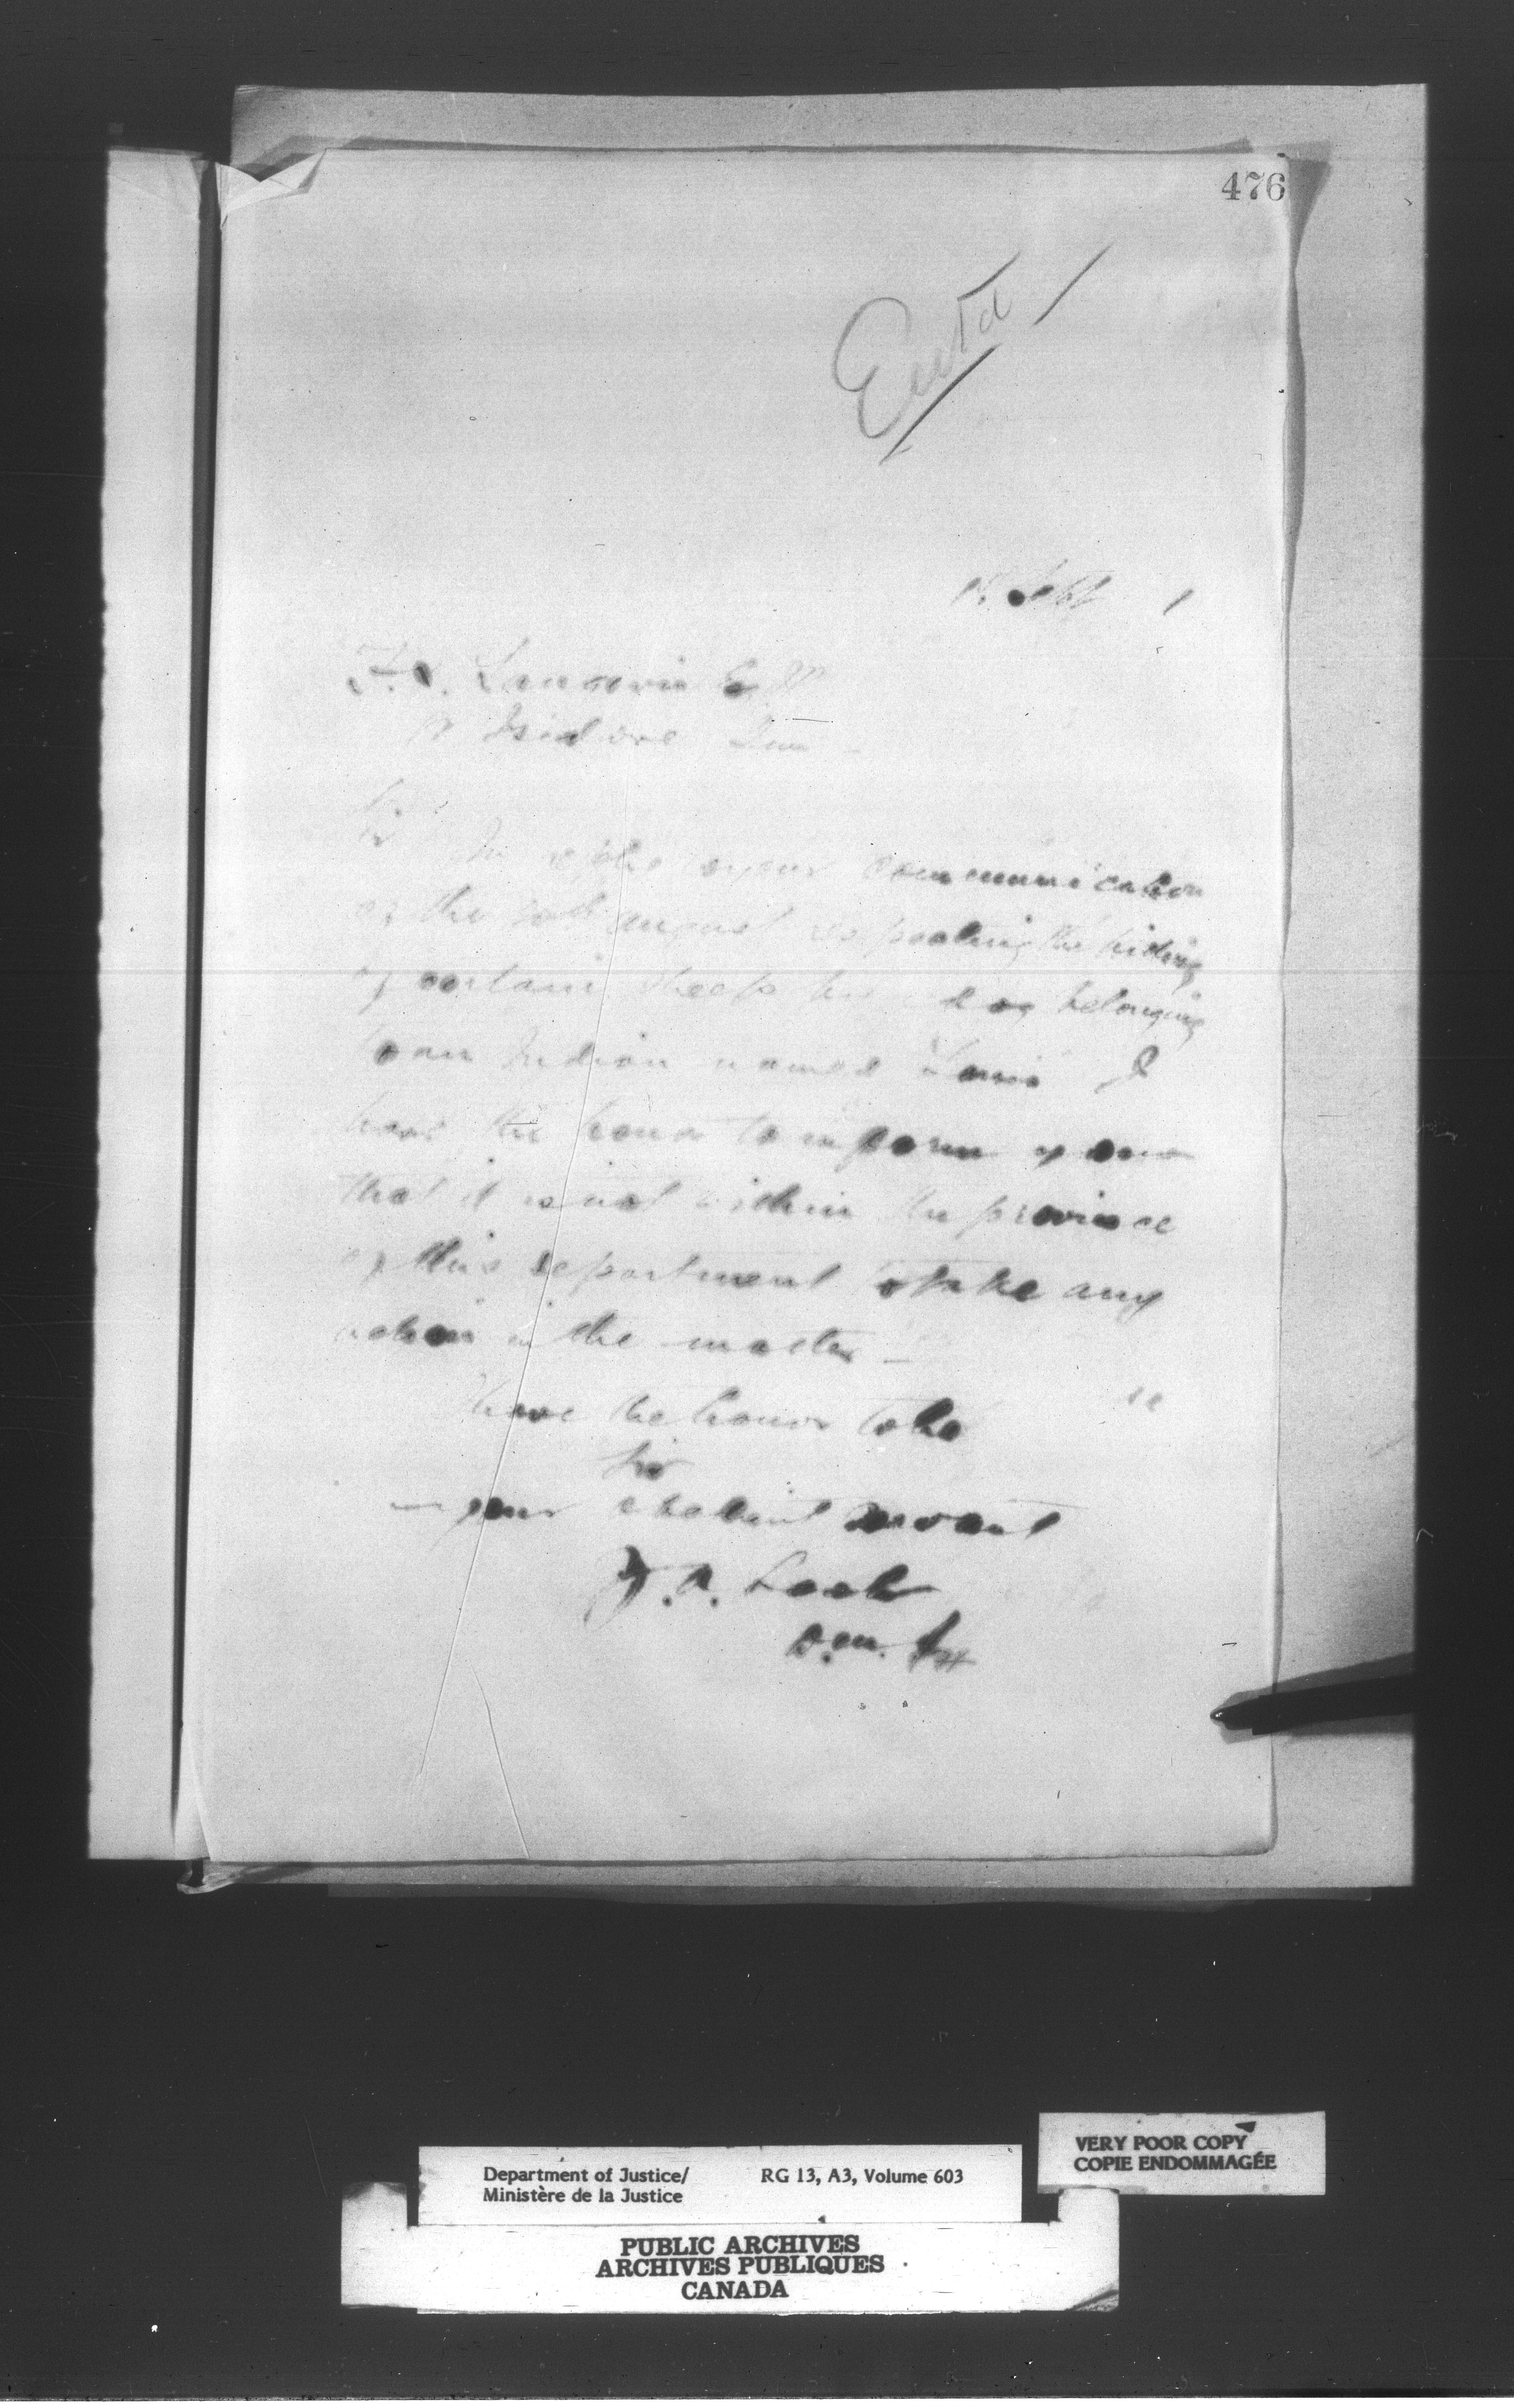 476
Entd
Sept 1
F. X. Langevin Esq
St Isidore
Sir
In reply to your communication
of the 20th August respecting the killing
of certain sheep by a dog belonging
to an Indian named Louis I
have the honor to inform you
that it is not within the province
of this department to take any
action in the matter -
have the honor to be
Sir
your obedient servant
D.M.
Department of Justice/
Ministère de la Justice
RG 13, A3, Volume 603
VERY POOR COPY
COPIE ENDOMMAGÉE
PUBLIC ARCHIVES
ARCHIVES PUBLIQUES
CANADA